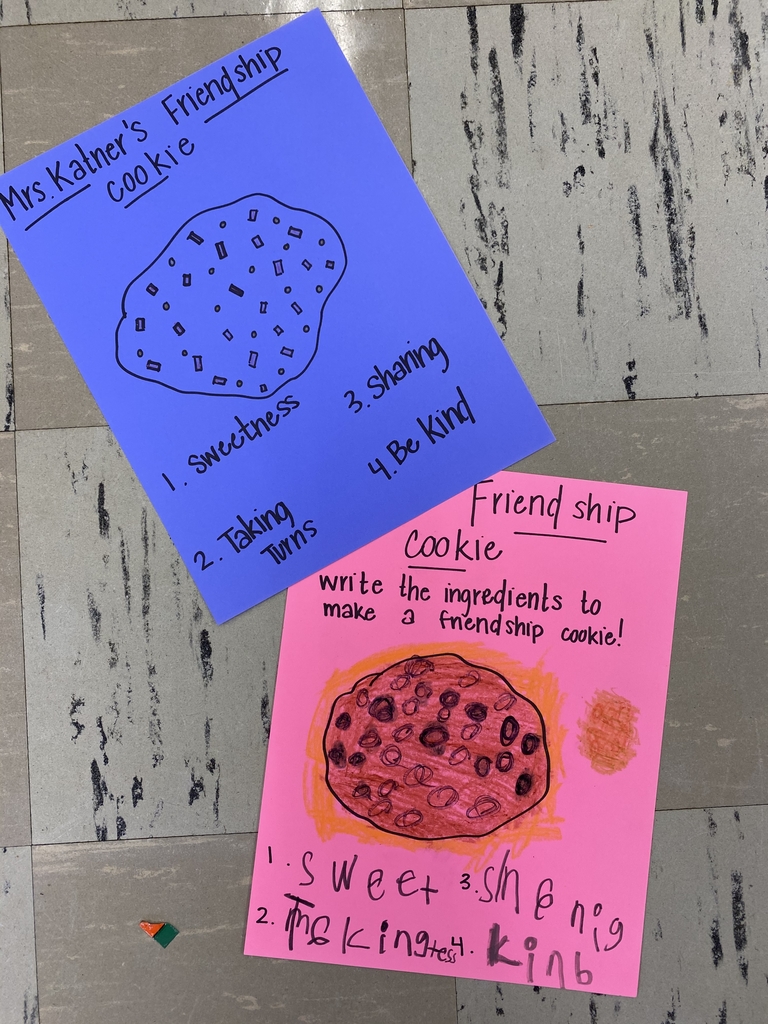 Mrs. Katner's Friendship
cookie
1. Sweetness
2. Taking
Turns
3. Sharing
4. Be Kind
Friendship
cookie
write the ingredients to
make a friendship cookie!
1. Sweet
2.
3.
4. Kinb